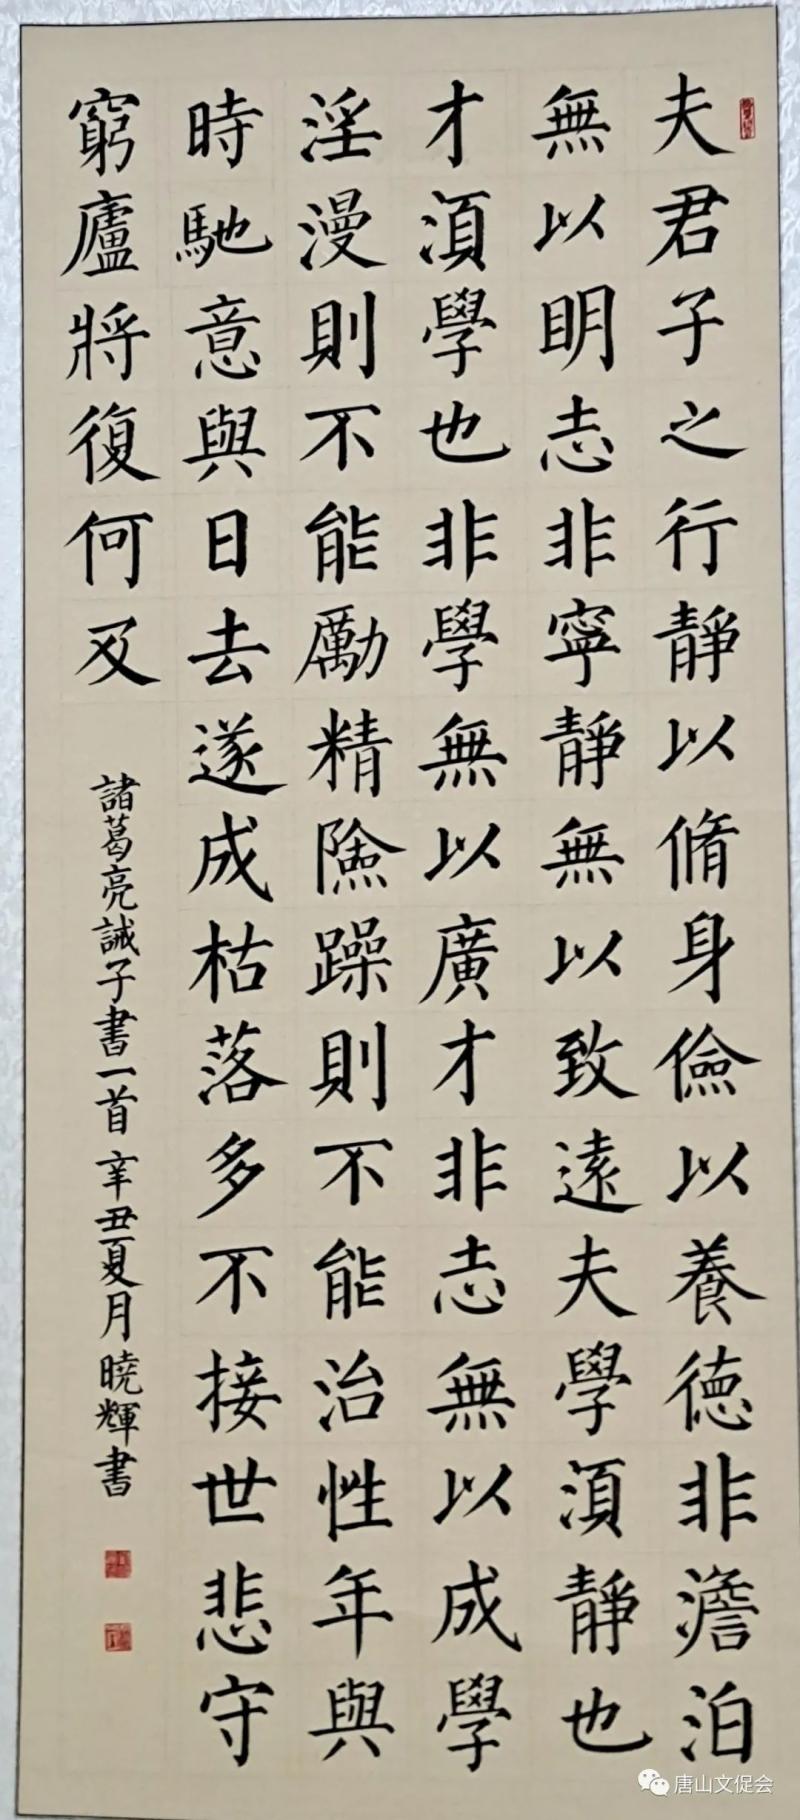 夫君子之行靜以脩身儉以養徳非澹泊
無以明志非寧靜無以致遠夫學湏靜也
才湏學也非學無以廣才非志無以成學
淫漫則不能勵精險躁則不能治性年與
時馳意與日去遂成枯落多不接世悲守
窮廬將復何及
諸葛亮誡子書一首 辛丑夏月曉輝書
唐山文促会